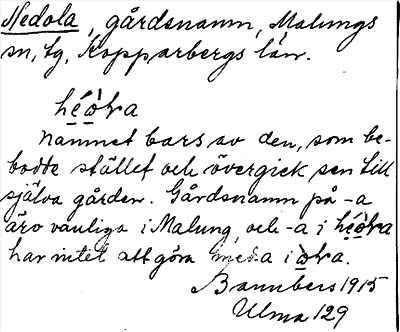 Nedola, gårdsnamn, Malungs
sn, tg, Kopparbergs län.
Namnet bars av den, som be-
bodde stället och övergick sen till
själva gården. Gårdsnamn på -a
äro vanliga i Malung, och -a i
har intet att göra med a i
Bannbers 1915
Ulma 129